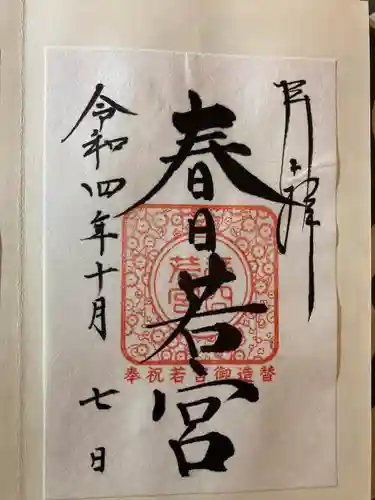 月日拝
春日若宮
奉祝若宮御造替
令和四年十月七日